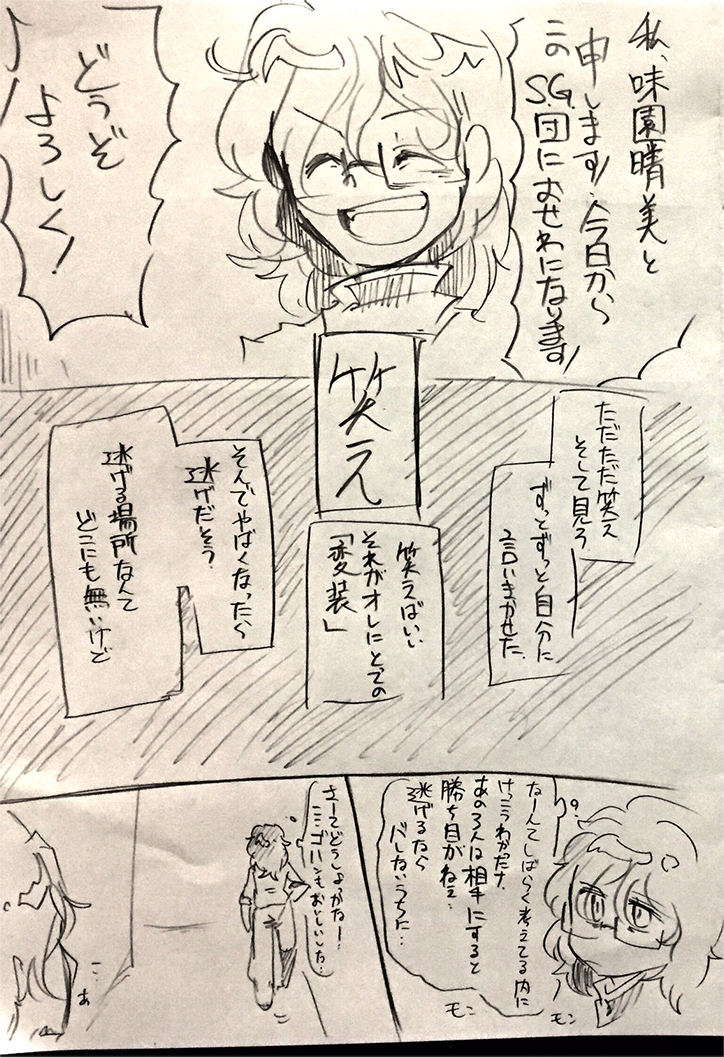 私、味園晴美と
申します!今日から
このS.G.団におせわになります!
どうぞ
よろしく!
ただただ笑え
そして見ろ
ずっとずっと自分に
言いきかせた。
笑え
笑えばいい
それがオレにとっての
「変装」
そんでやばくなったら
逃げだそう
逃げる場所なんて
どこにも無いけど
なーんてしばらく考えてる内に
けっこうわかったナ。
あの3人は相手にすると
勝ち目がねェ…
逃げるなら
バレないうちに…
モン
モン
さーてどうしょっかねー!
ゴハンもおいしいした…
あ